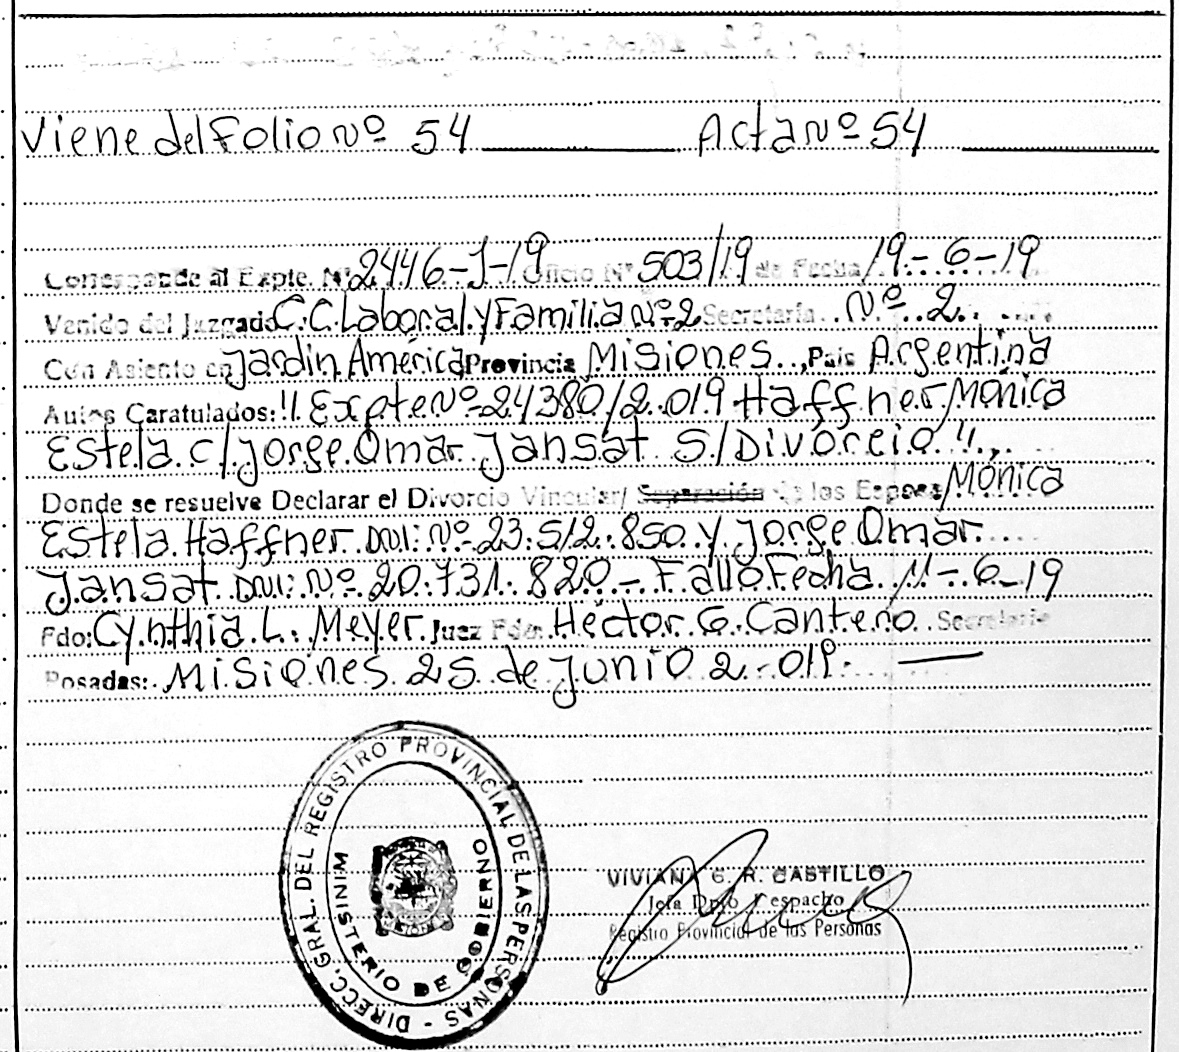 Viene del Folio Nº 54 Acta Nº 54
Corresponde al Expte. Nº 2446-J-19 Oficio Nº 503/19 de Fecha 19-6-19
Venido del Juzgado C.C. Laboral y Familia Nº 2 Secretaría Nº 2.
Con Asiento en Jardin América Provincia Misiones, País Argentina
Autos Caratulados: "Expte Nº 24380/2.019 Haffner Mónica
Estela c/ Jorge Omar Jansat S/ Divorcio",
Donde se resuelve Declarar el Divorcio Vincular/ Separación de los Esposos Mónica
Estela Haffner DNI: Nº 23.512.850 y Jorge Omar
Jansat DNI: Nº 20.731.820 - Fallo Fecha 11-6-19
Fdo: Cynthia L. Meyer Juez Fdo: Héctor G. Cantero Secretario
Posadas: Misiones 25 de Junio 2.019.
DIRECC. GRAL. DEL REGISTRO PROVINCIAL DE LAS PERSONAS -
MINISTERIO DE GOBIERNO
VIVIANA C. R. CASTILLO
Jefa Dpto Despacho
Registro Provincial de las Personas